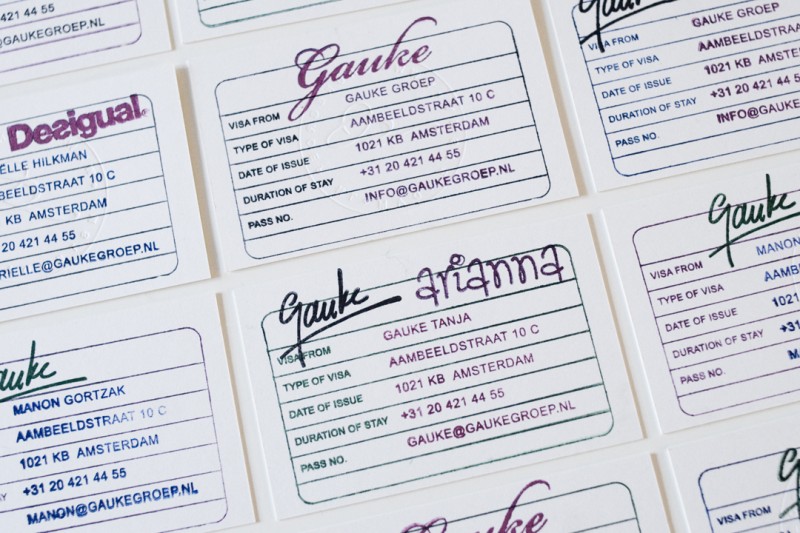 421 44 55
@GAUKEGROEP.NL
Gauke
VISA FROM GAUKE GROEP
TYPE OF VISA AAMBEELDSTRAAT 10 C
DATE OF ISSUE 1021 KB AMSTERDAM
DURATION OF STAY +31 20 421 44 55
PASS NO. INFO@GAUKEGROEP.NL
Gauke
VISA FROM GAUKE GROEP
TYPE OF VISA AAMBEELDSTRAAT 10 C
DATE OF ISSUE 1021 KB AMSTERDAM
DURATION OF STAY +31 20 421 44 55
PASS NO. INFO@GAUKEG
Desigual.
ËLLE HILKMAN
BEELDSTRAAT 10 C
KB AMSTERDAM
20 421 44 55
RIELLE@GAUKEGROEP.NL
Gauke arianna
VISA FROM GAUKE TANJA
TYPE OF VISA AAMBEELDSTRAAT 10 C
DATE OF ISSUE 1021 KB AMSTERDAM
DURATION OF STAY +31 20 421 44 55
PASS NO. GAUKE@GAUKEGROEP.NL
Gauke
VISA FROM MANON
TYPE OF VISA AAMB
DATE OF ISSUE 1021
DURATION OF STAY +31
PASS NO. M
auke
MANON GORTZAK
AAMBEELDSTRAAT 10 C
1021 KB AMSTERDAM
AY +31 20 421 44 55
MANON@GAUKEGROEP.NL
Gauke
VISA FROM